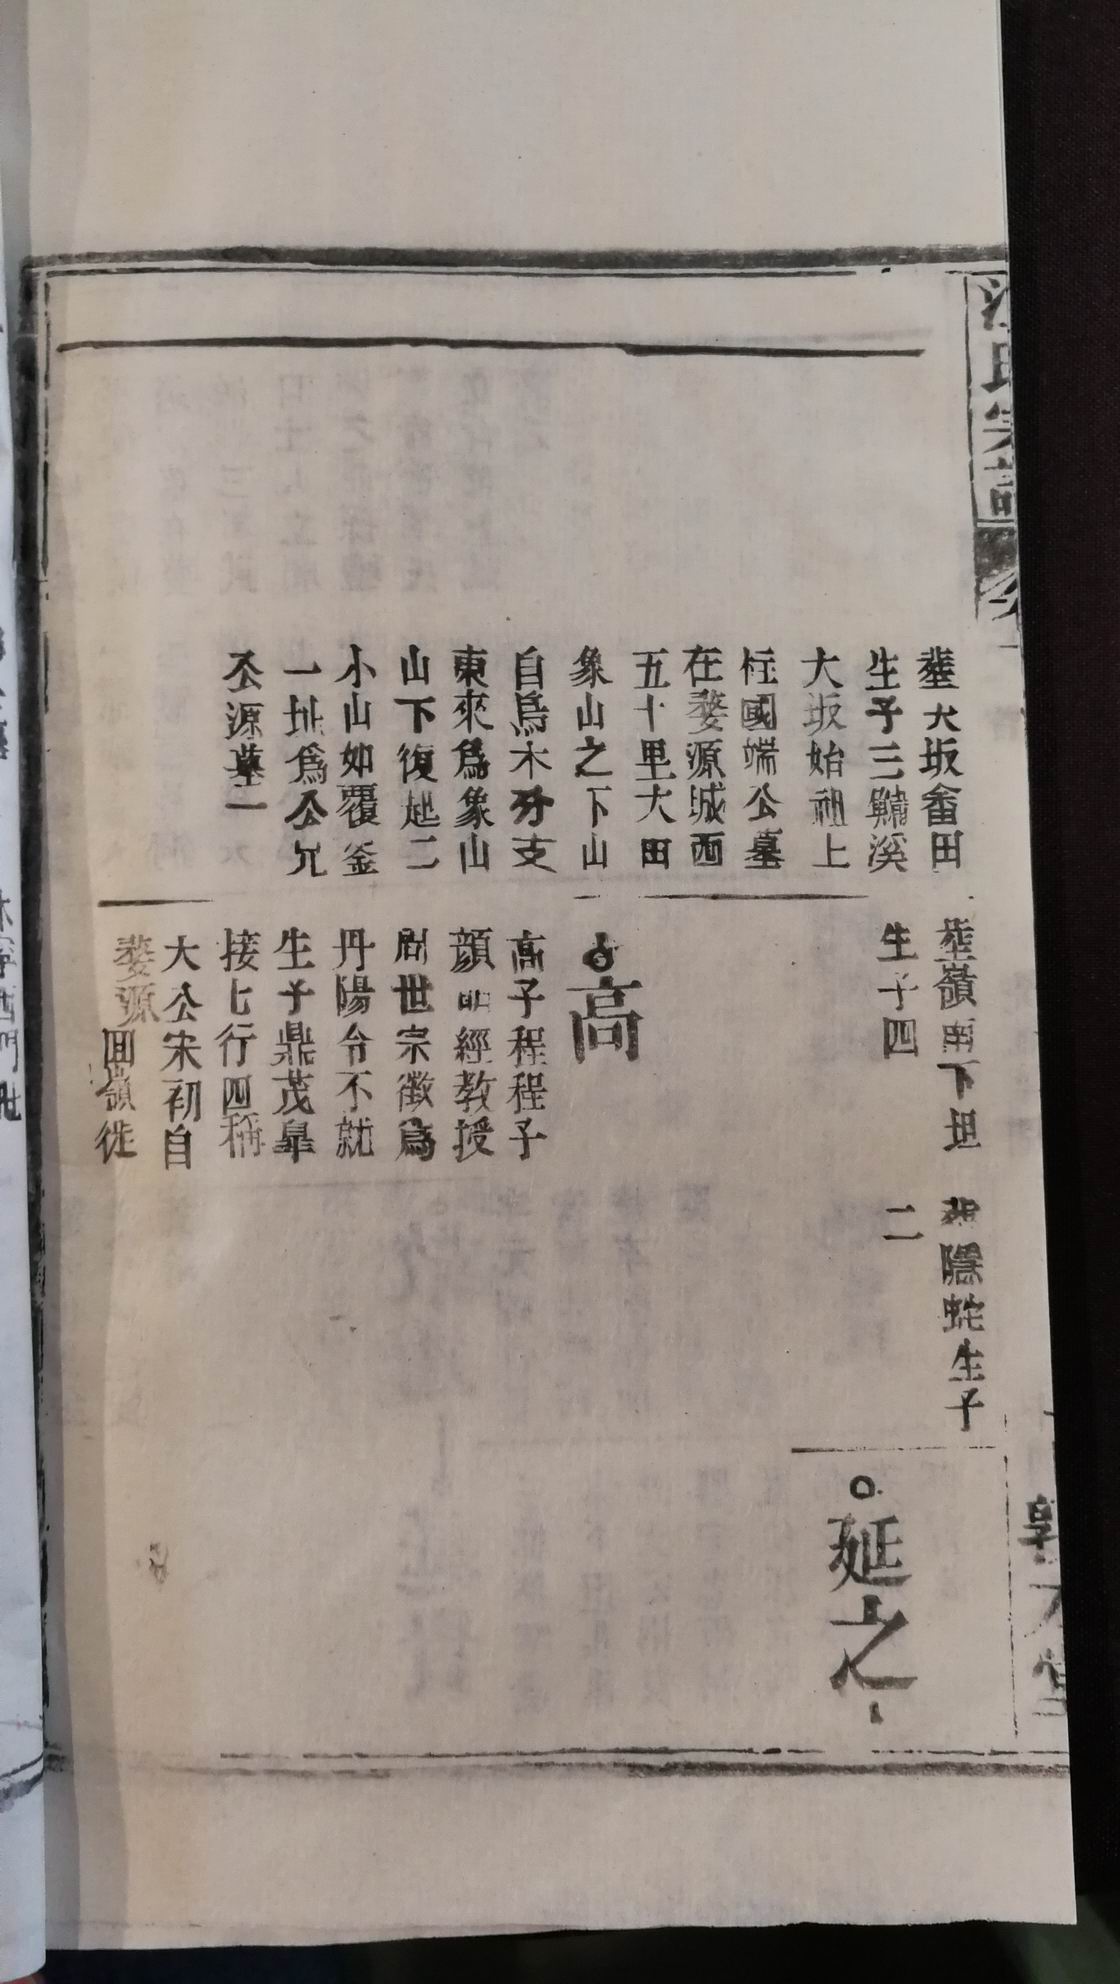 氏宗譜
葬大坂畲田
生子三鱅溪
大坂始祖上
柱國端公墓
在婺源城西
五十里大田
象山之下山
自爲木分支
東來爲象山
山下復起二
小山如覆釜
一址爲公兄
公源墓二
葬嶺南下坦
生子四
高
高子程程子
顔明經教授
周世宗徵爲
丹陽令不就
生子鼎茂臯
接七行四稱
大公宋初自
婺源回嶺徙
葬隱蛇生子
二
延之